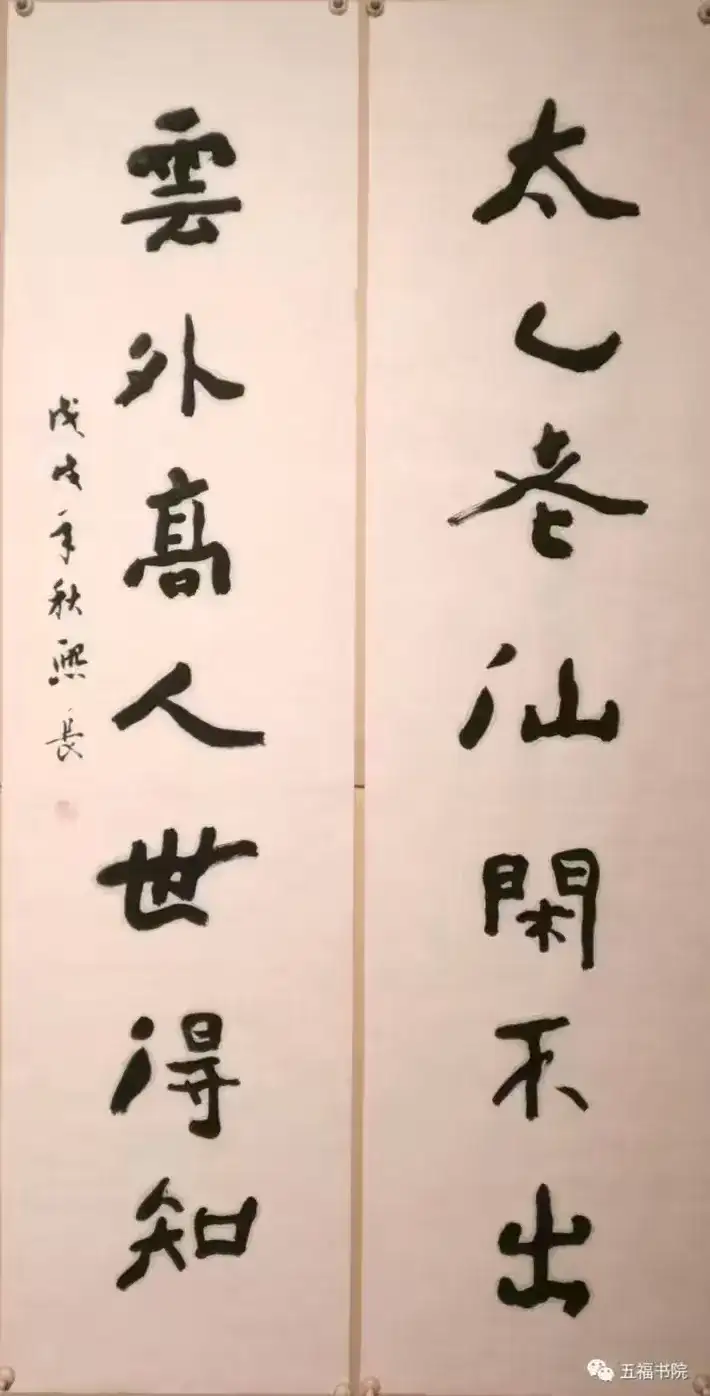 太乙老仙閑不出
雲外高人世得知
戊戌年秋熙長
五福书院